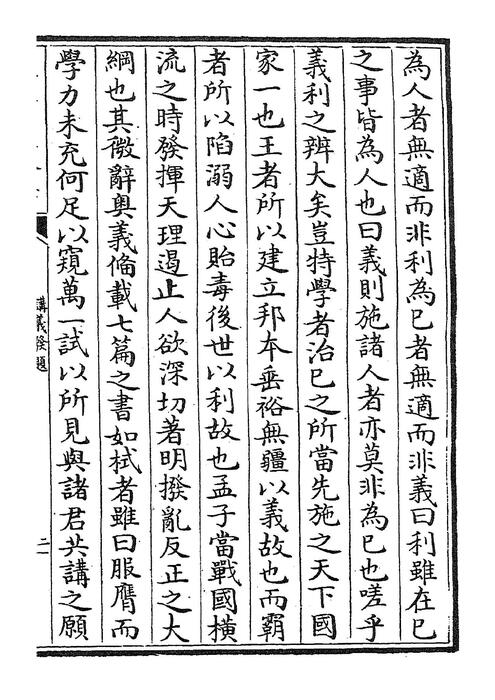 為人者無適而非利為已者無適而非義曰利雖在已
之事皆為人也曰義則施諸人者亦莫非為已也嗟乎
義利之辨大矣豈特學者治已之所當先施之天下國
家一也王者所以建立邦本垂裕無疆以義故也而霸
者所以陷溺人心貽毒後世以利故也孟子當戰國橫
流之時發揮天理遏止人欲深切著明撥亂反正之大
綱也其微辭奥義偹載七篇之書如栻者雖曰服膺而
學力未充何足以窺萬一試以所見與諸君共講之願
講義發題
二